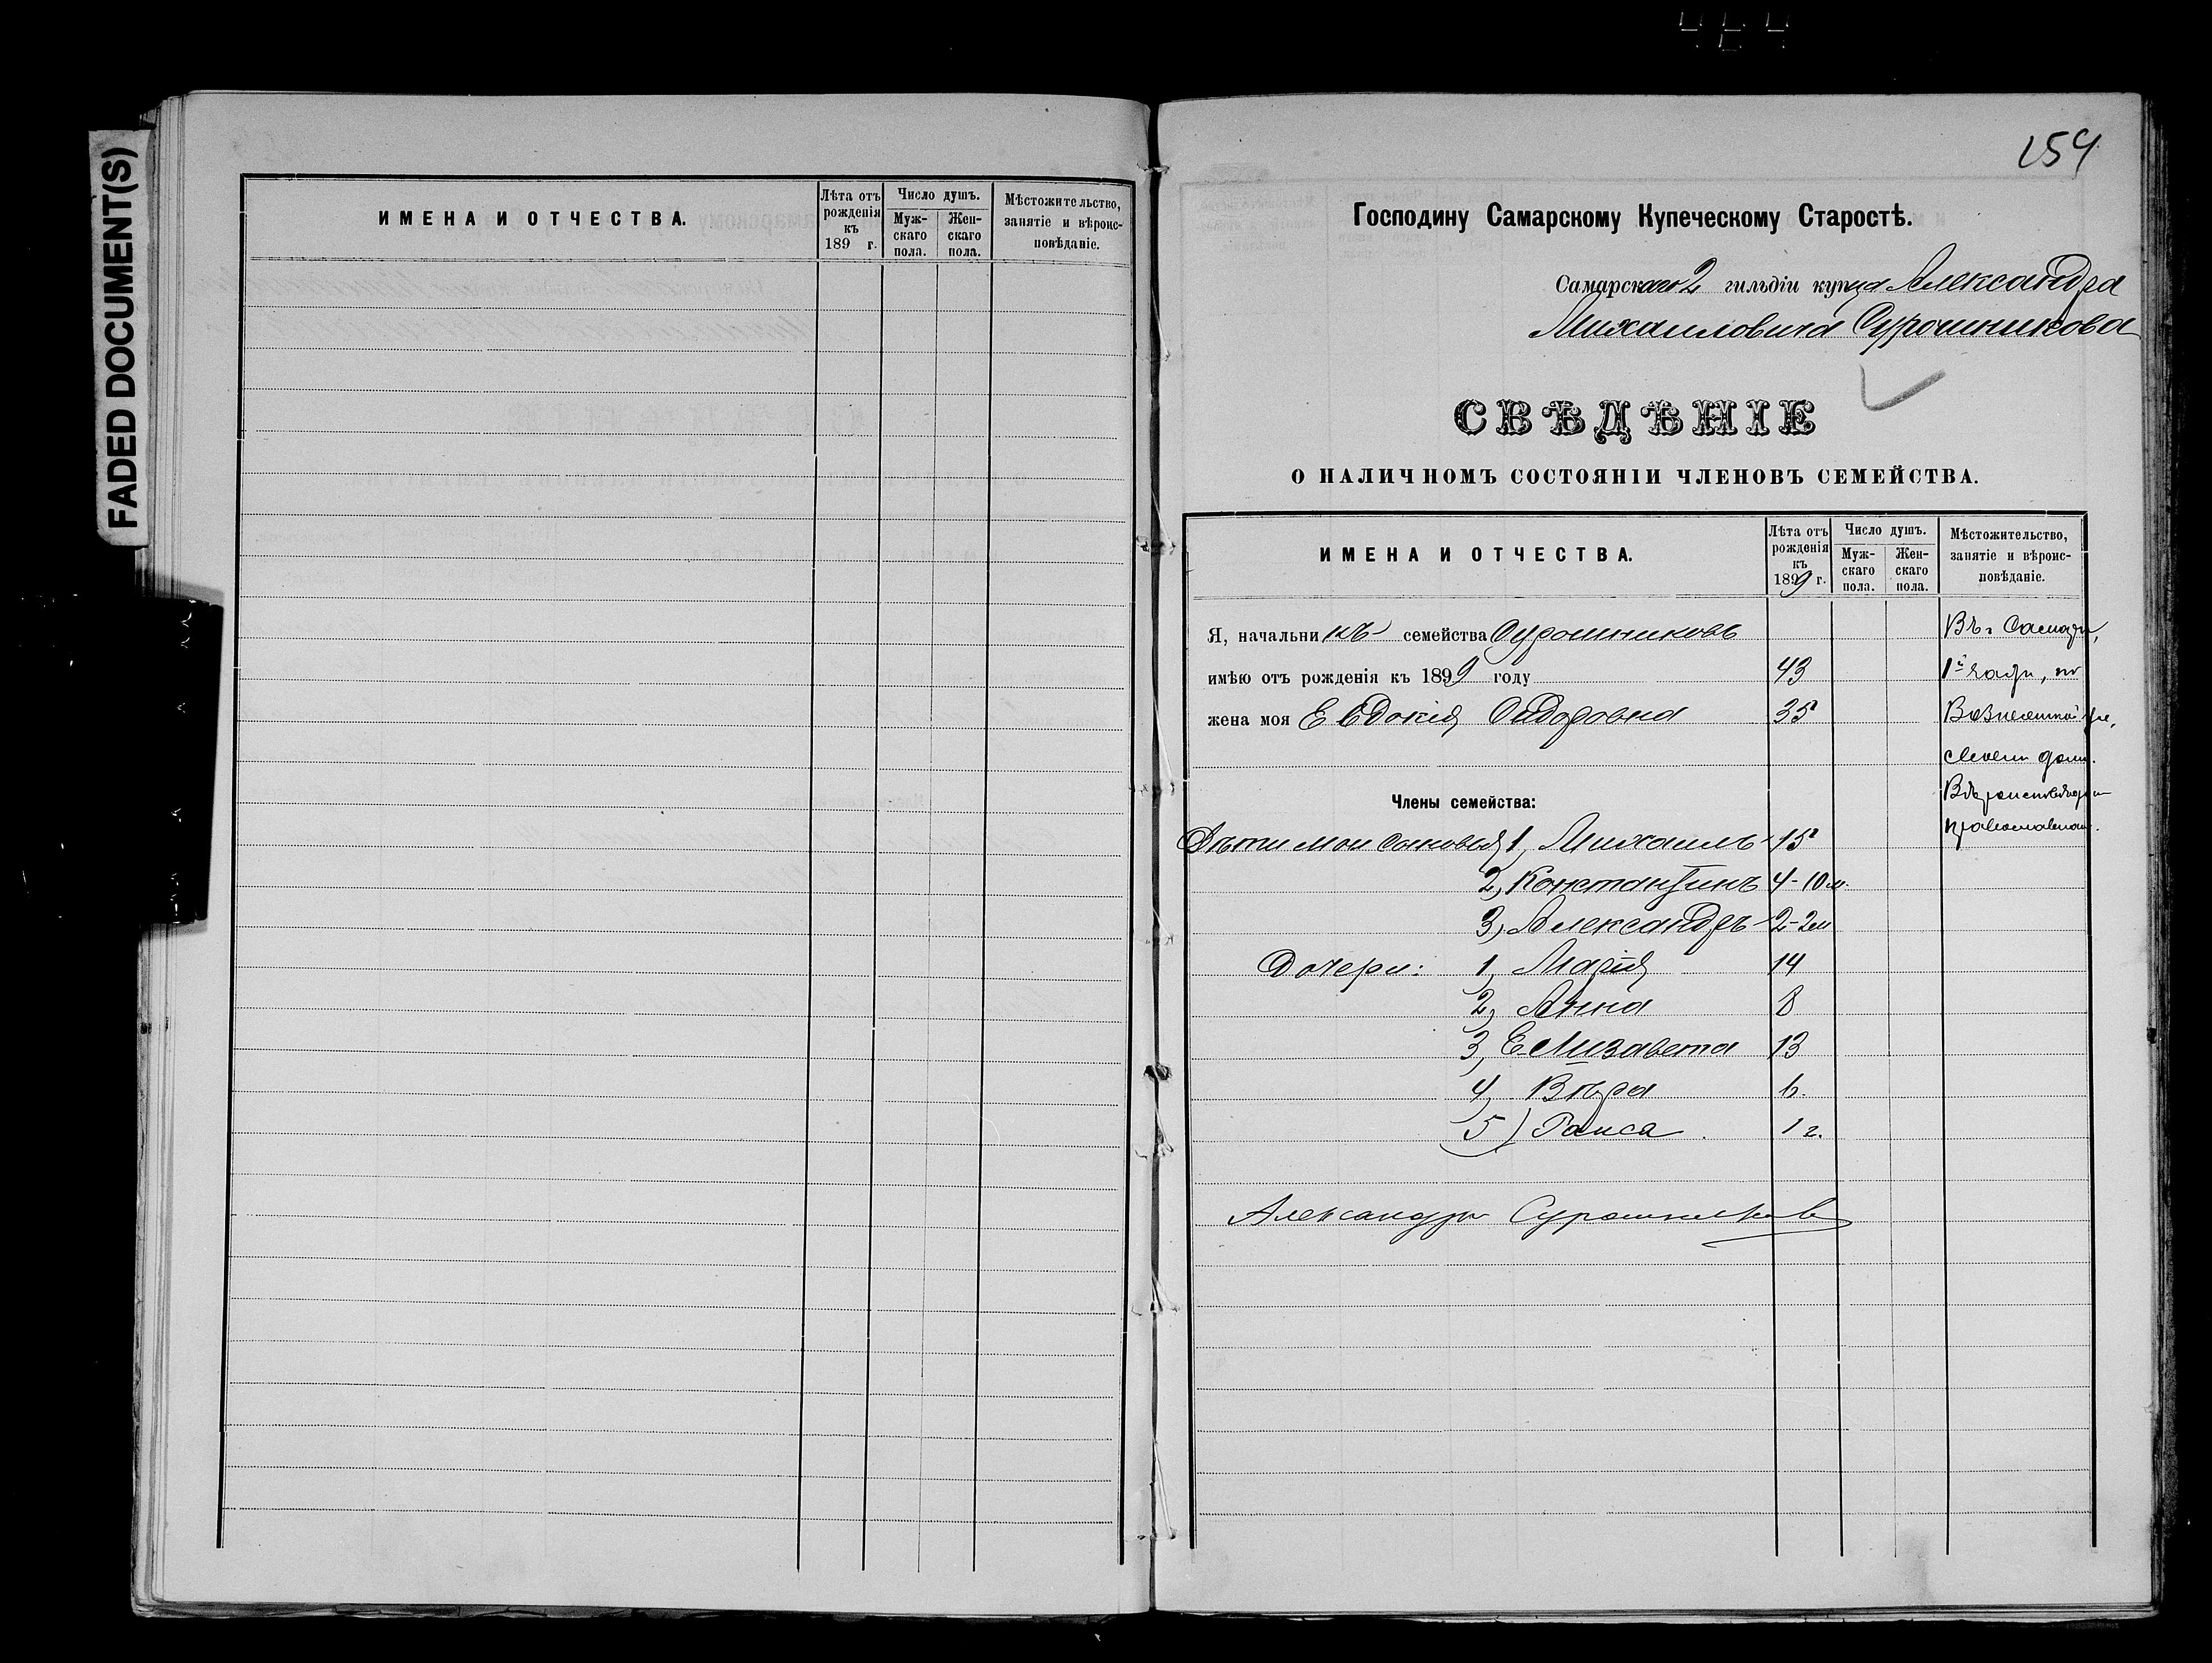 FADED DOCUMENT(S)
ИМЕНА И ОТЧЕСТВА.
Лѣта отъ рожденія къ 189 г.
Число душъ.
Муж-скаго пола.
Жен-скаго пола.
Мѣстожительство, занятіе и вѣроис-повѣданіе.
154
Господину Самарскому Купеческому Старостѣ.
Самарскаго 2 гильдіи купца Александра
Михаиловича Сурошникова
СВѢДѢНІЕ
О НАЛИЧНОМЪ СОСТОЯНІИ ЧЛЕНОВЪ СЕМЕЙСТВА.
ИМЕНА И ОТЧЕСТВА.
Лѣта отъ рожденія къ 1899 г.
Число душъ.
Муж-скаго пола.
Жен-скаго пола.
Мѣстожительство, занятіе и вѣроис-повѣданіе.
Я, начальникъ семейства Сурошниковъ
Въ г. Самарѣ,
имѣю отъ рожденія къ 1899 году 43
1й части, по
жена моя Евдокія Сидоровна 35
Вознесенской ул,
своемъ домѣ.
Члены семейства:
Вѣроисповѣданія
православнаго.
Дѣти мои сыновья 1, Михаилъ 15
2, Константинъ 4-10 м.
3, Александръ 2-2 м
Дочери: 1, Марія 14
2, Анна 8
3, Елизавета 13
4, Вѣра 6.
5) Раиса. 1 г.
Александръ Сурошников